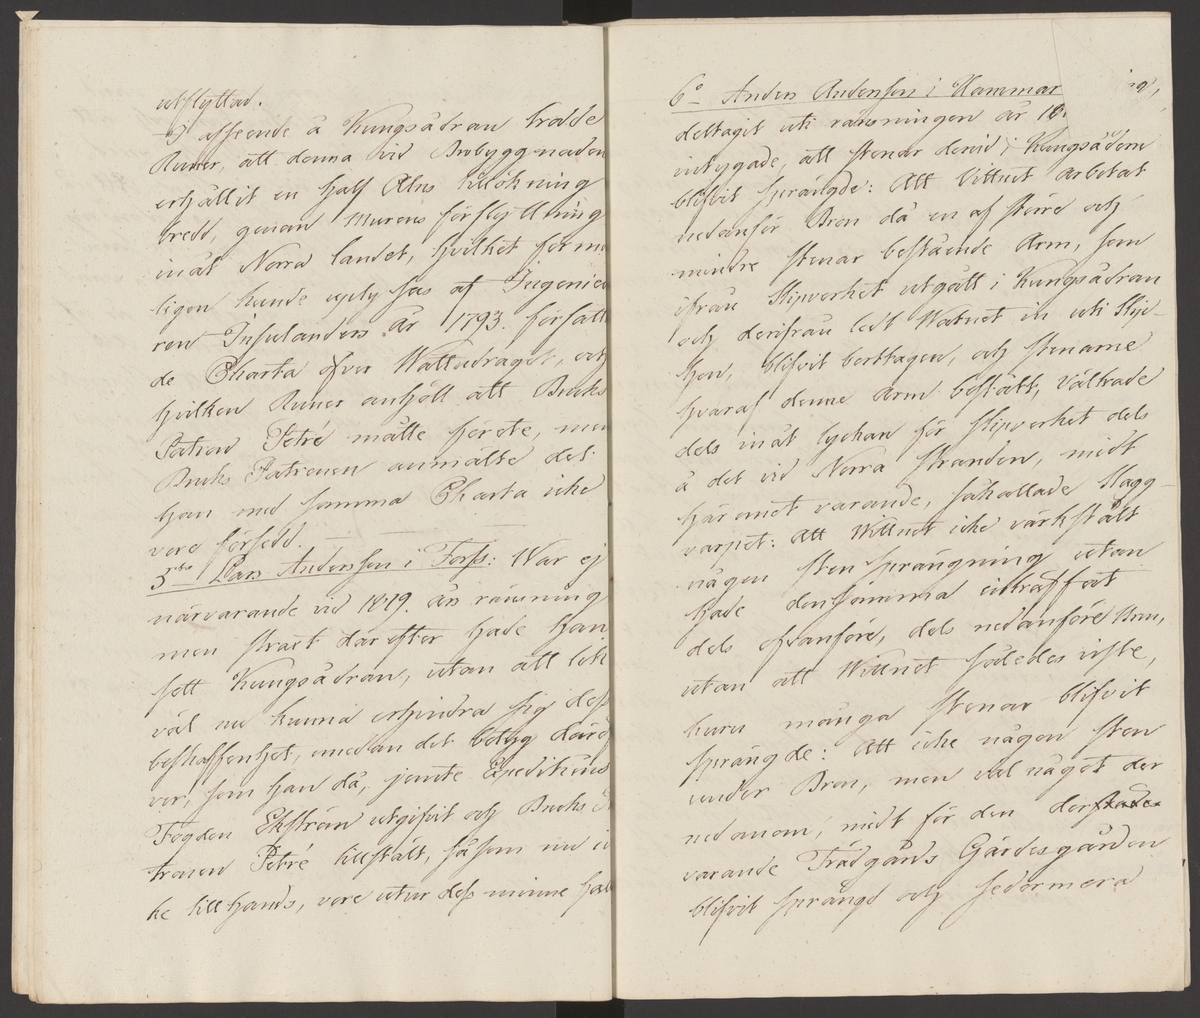 utflyttad.
I afseende å Kungsådran trodde
Rumer, att denna vid Brobyggnaden
erhållit en half Alns tillökning
bredd, genom Murens förflyttning
inåt Norra landet, hvilket förmo
ligen kunde upplysas af Ingenieu
ren Insulanders År 1793. författa
de Charta öfver Wattudraget, och
hvilken Rumer anhöll att Bruks
Patron Petré måtte förete, men
Bruks Patronen anmälte det
han med samma Charta icke
vore försedd.
5to Lars Andersson i Forss: War ej
närvarande vid 1819. års ransning
men strart därefter hade han
sett Kungsådran, utan att lik
väl nu kunna erhindra sig dess
beskaffenhet, emedan det betyg däröf
ver, som han då, jemte Expeditions
Fogden Ekström utgifvit och Bruks Pa
tronen Petré tillstält, såsom nu ic
ke tillhands, vore utur dess minne
6o Anders Andersson i Hammar
deltagit uti ransningen år 18
intygade, att stenar dervid i Kungsådern
blifvit sprängde: Att Vittnet arbetat
nedanför Bron då en af större och
mindre stenar bestående Arm, som
ifrån Slipverket utgått i Kungsådran
och derifrån ledt Watnet in uti Slip-
hen, blifvit borttagen, och stenarne
hvaraf denne Arm bestått, vältrade
dels inåt lyckan för Slipverket dels
å det vid Norra Stranden, midt
häremot varande, såkallade Slagg-
varpet: Att Wittnet icke värkstält
någon stensprängning utan
hade densamma inträffat
dels ofvanföre, dels nedanföre Bron,
utan att Wittnet således viste,
huru många stenar blifvit
sprängde: Att icke någon sten
under Bron, men väl något der
nedanom, midt för den der
varande Trädgårds Gärdesgården
blifvit sprängd och sedermera